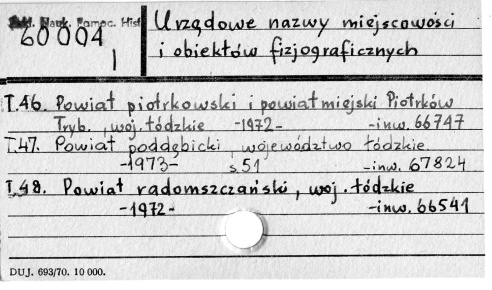 Nauk. Pomoc. Hist
60004
I
Urzędowe nazwy miejscowości
i obiektów fizjograficznych
T.46. Powiat piotrkowski i powiat miejski Piotrków
Tryb., woj. łódzkie -1972- -inw. 66747
T.47. Powiat poddębicki, województwo łódzkie
-1973- s.51 -inw. 67824
T.48. Powiat radomszczański, woj. łódzkie
-1972- -inw. 66541
DUJ. 693/70. 10 000.